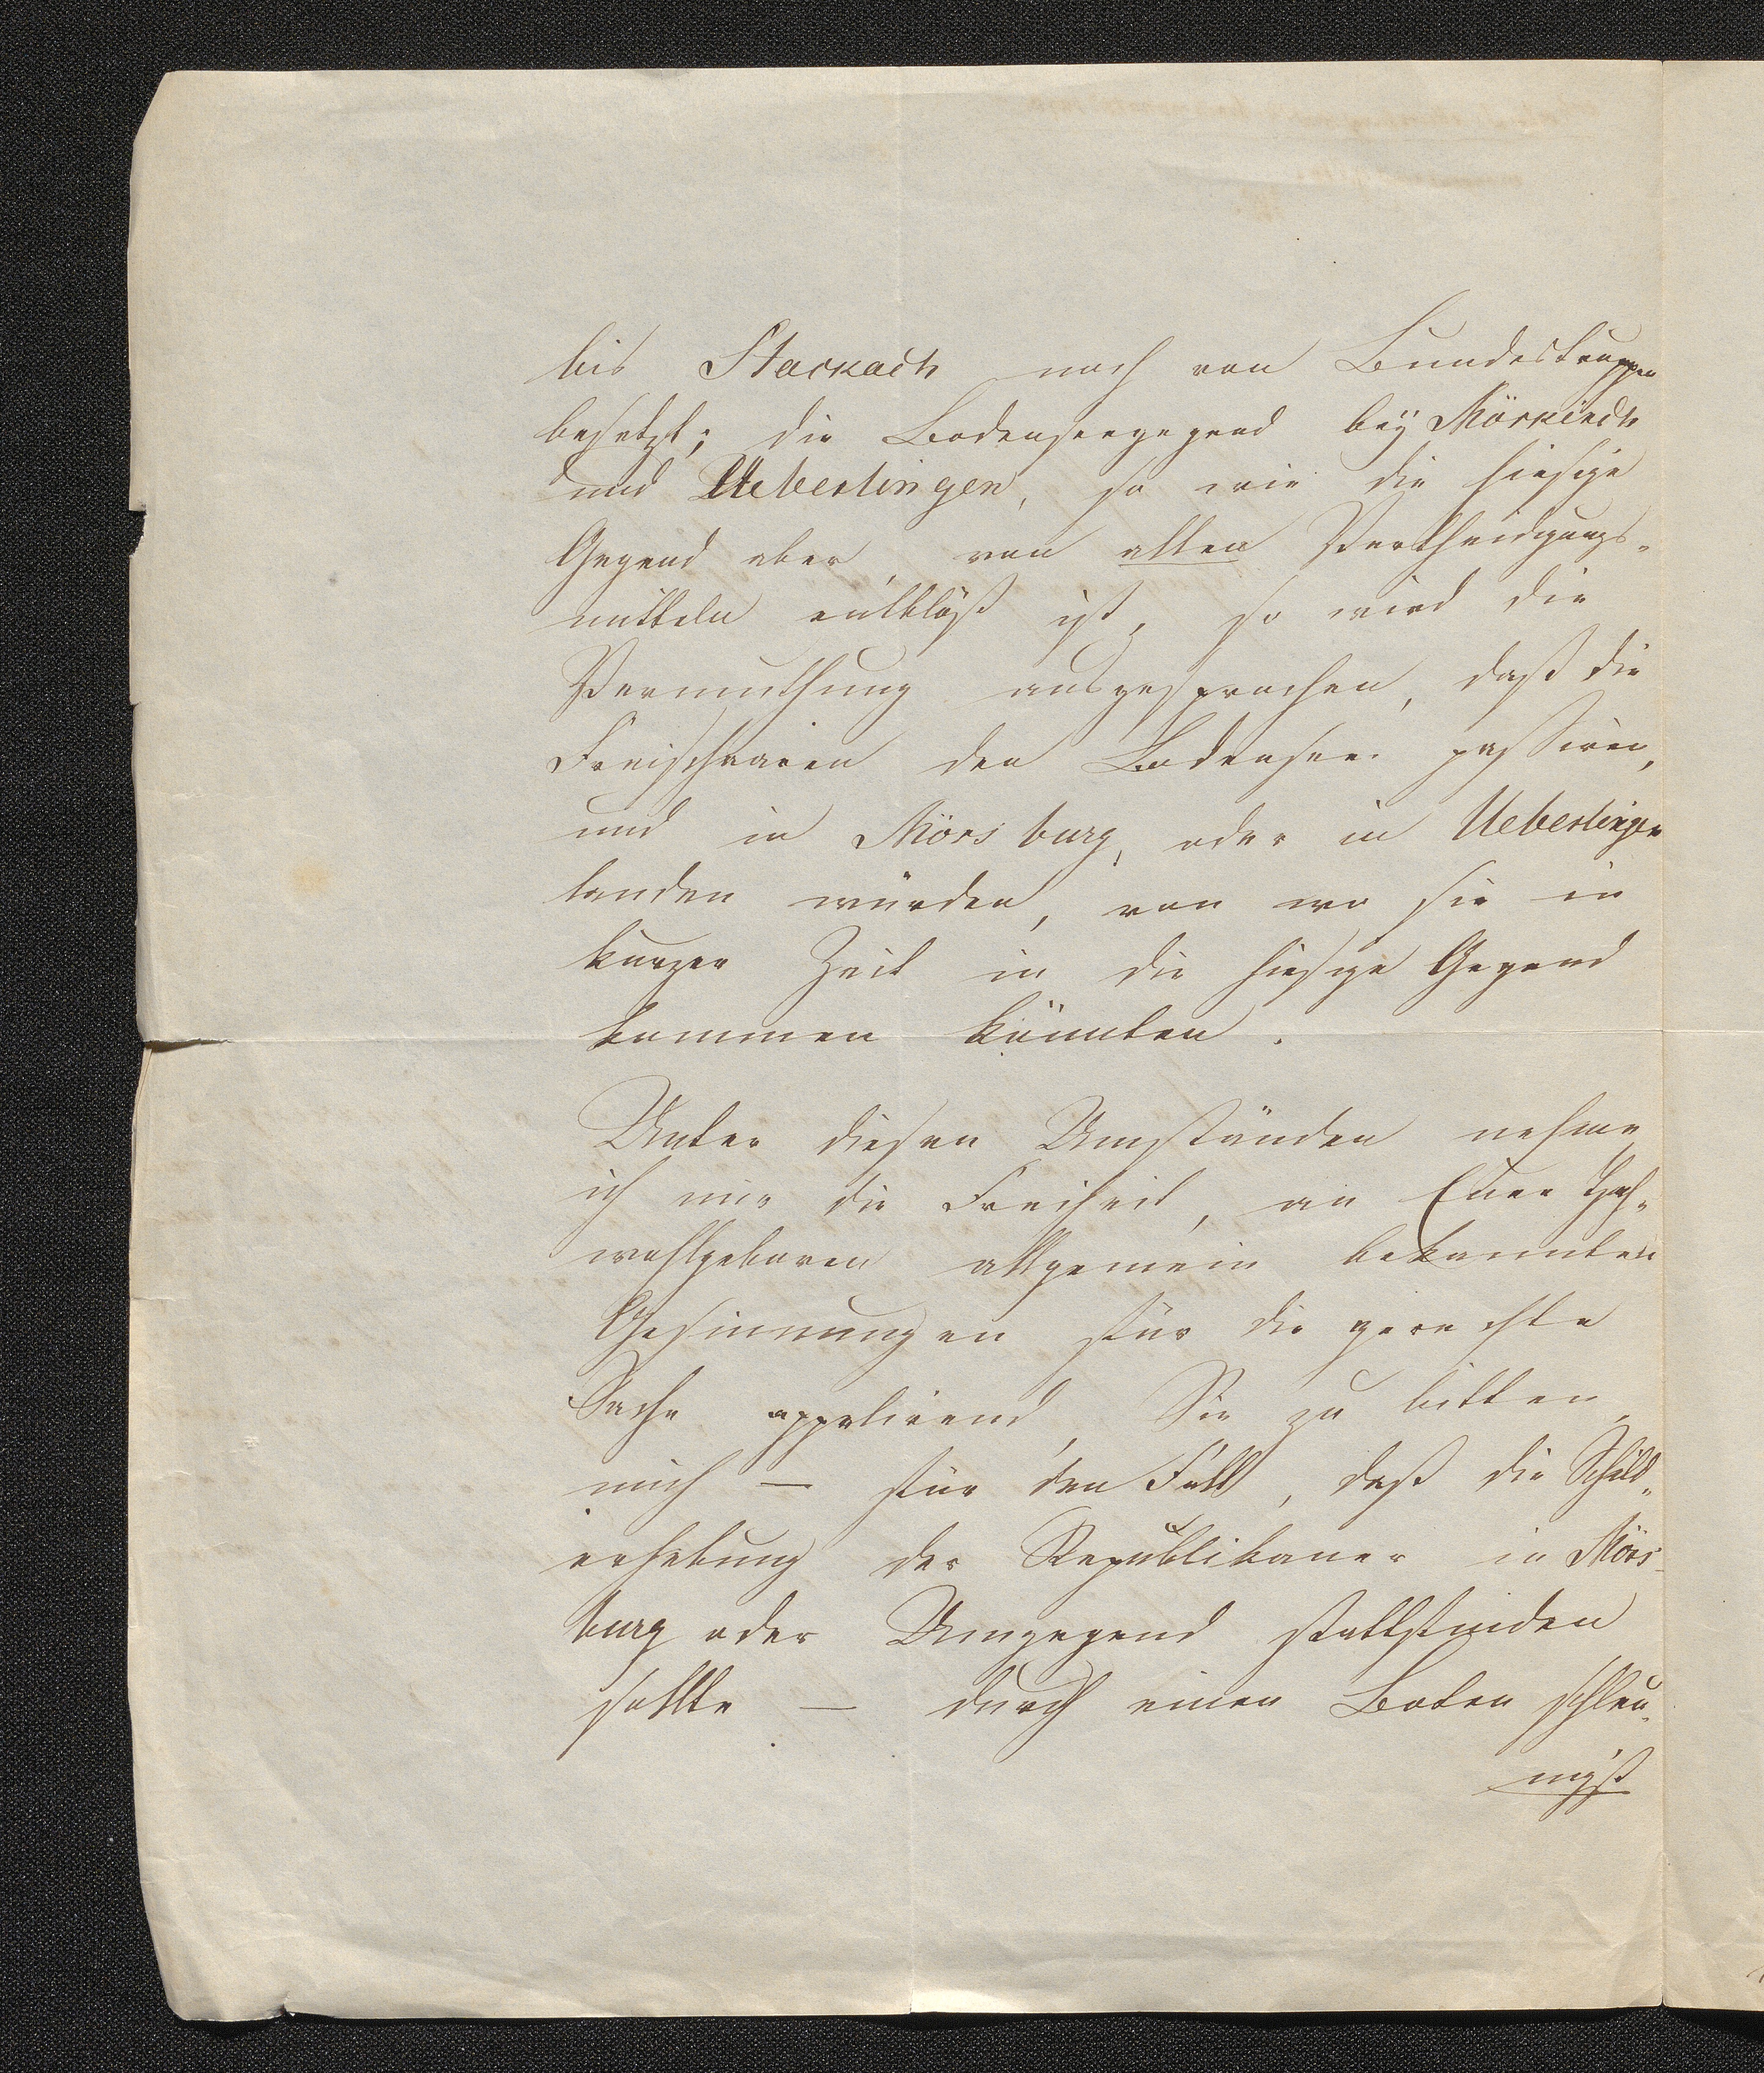 bis Stockach noch von Bundestruppen
besetzt; die Bodenseegegend bey Mörskirch
und Ueberlingen, so wie die hiesige
Gegend aber, von allen Vertheidigungs-
mitteln entblößt ist, so wird die
Vermuthung ausgesprochen, daß die
Freischaaren den Bodensee passiren,
und in Mörsburg, oder in Ueberlingen
landen würden, von wo sie in
kurzer Zeit in die hiesige Gegend
kommen könnten.
Unter diesen Umständen nehme
ich mir die Freiheit, an Euer Hoch-
wohlgeboren allgemein bekannten
Gesinnungen für die gerechte
Sache appelirend, Sie zu bitten,
mich — für den Fall, daß die Schild-
erhebung der Republikaner in Mörs-
burg oder Umgegend stattfinden
sollte — durch einen Boten schleu-
nigst